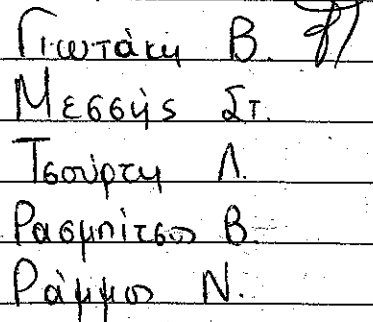 Γιωτάκη Β.
Μεσσής Στ.
Τσούρτη Λ.
Ρασμπίτσο Β.
Ράμμο Ν.